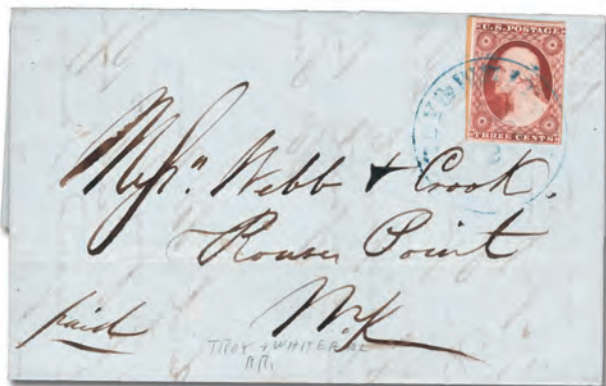 U.S. POSTAGE
THREE CENTS
Messrs. Webb + Crook.
Rouses Point
N.Y.
paid
TROY + WHITEHALL
RR.